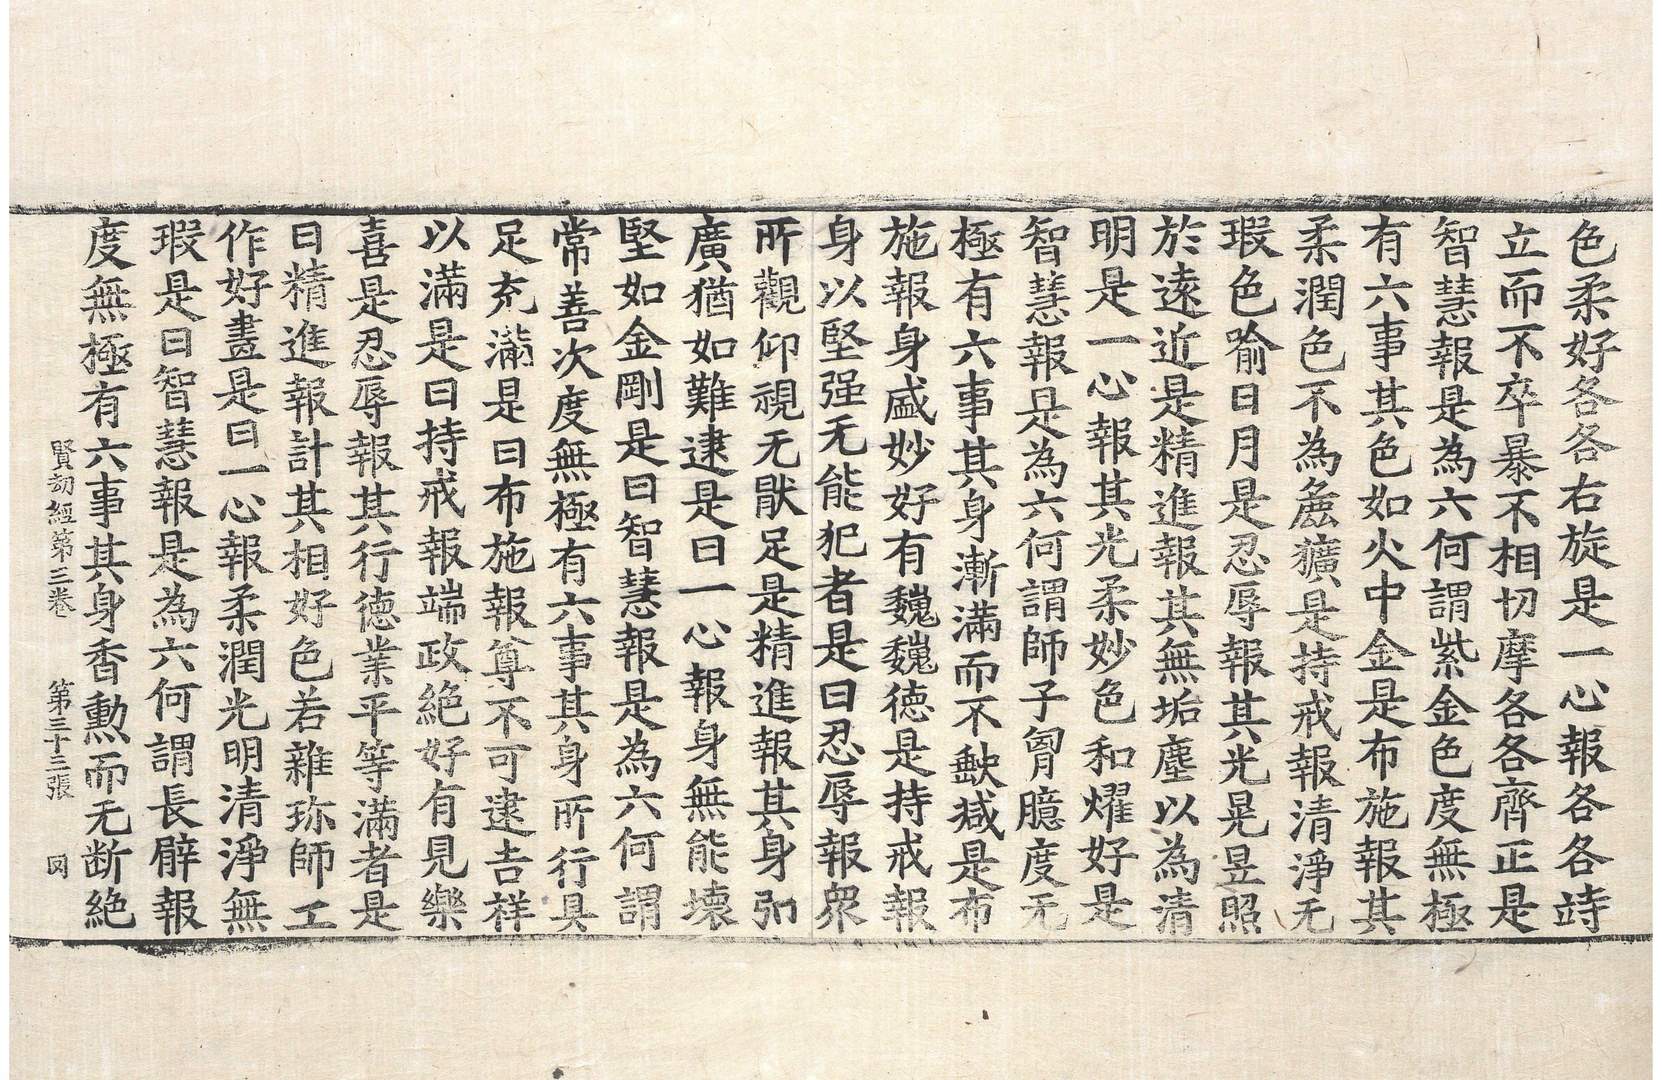 色柔好各各右旋是一心報各各跱
立而不卒暴不相切摩各各齊正是
智慧報是為六何謂紫金色度無極
有六事其色如火中金是布施報其
柔潤色不為麁獷是持戒報清淨无
瑕色喻日月是忍辱報其光晃昱照
於遠近是精進報其無垢塵以為清
明是一心報其光柔妙色和燿好是
智慧報是為六何謂師子𦙄臆度无
極有六事其身漸滿而不缺減是布
施報身盛妙好有巍巍德是持戒報
身以堅强无能犯者是曰忍辱報衆
所觀仰視无猒足是精進報其身弘
廣猶如難逮是曰一心報身無能壞
堅如金剛是曰智慧報是為六何謂
常善次度無極有六事其身所行具
足充滿是曰布施報尊不可逮吉祥
以滿是曰持戒報端政絶好有見樂
喜是忍辱報其行德業平等滿者是
曰精進報計其相好色若雜珎師工
作好畫是曰一心報柔潤光明清淨無
瑕是曰智慧報是為六何謂長臂報
度無極有六事其身香勲而无断絶
賢劫經第三卷 第三十三張 岡